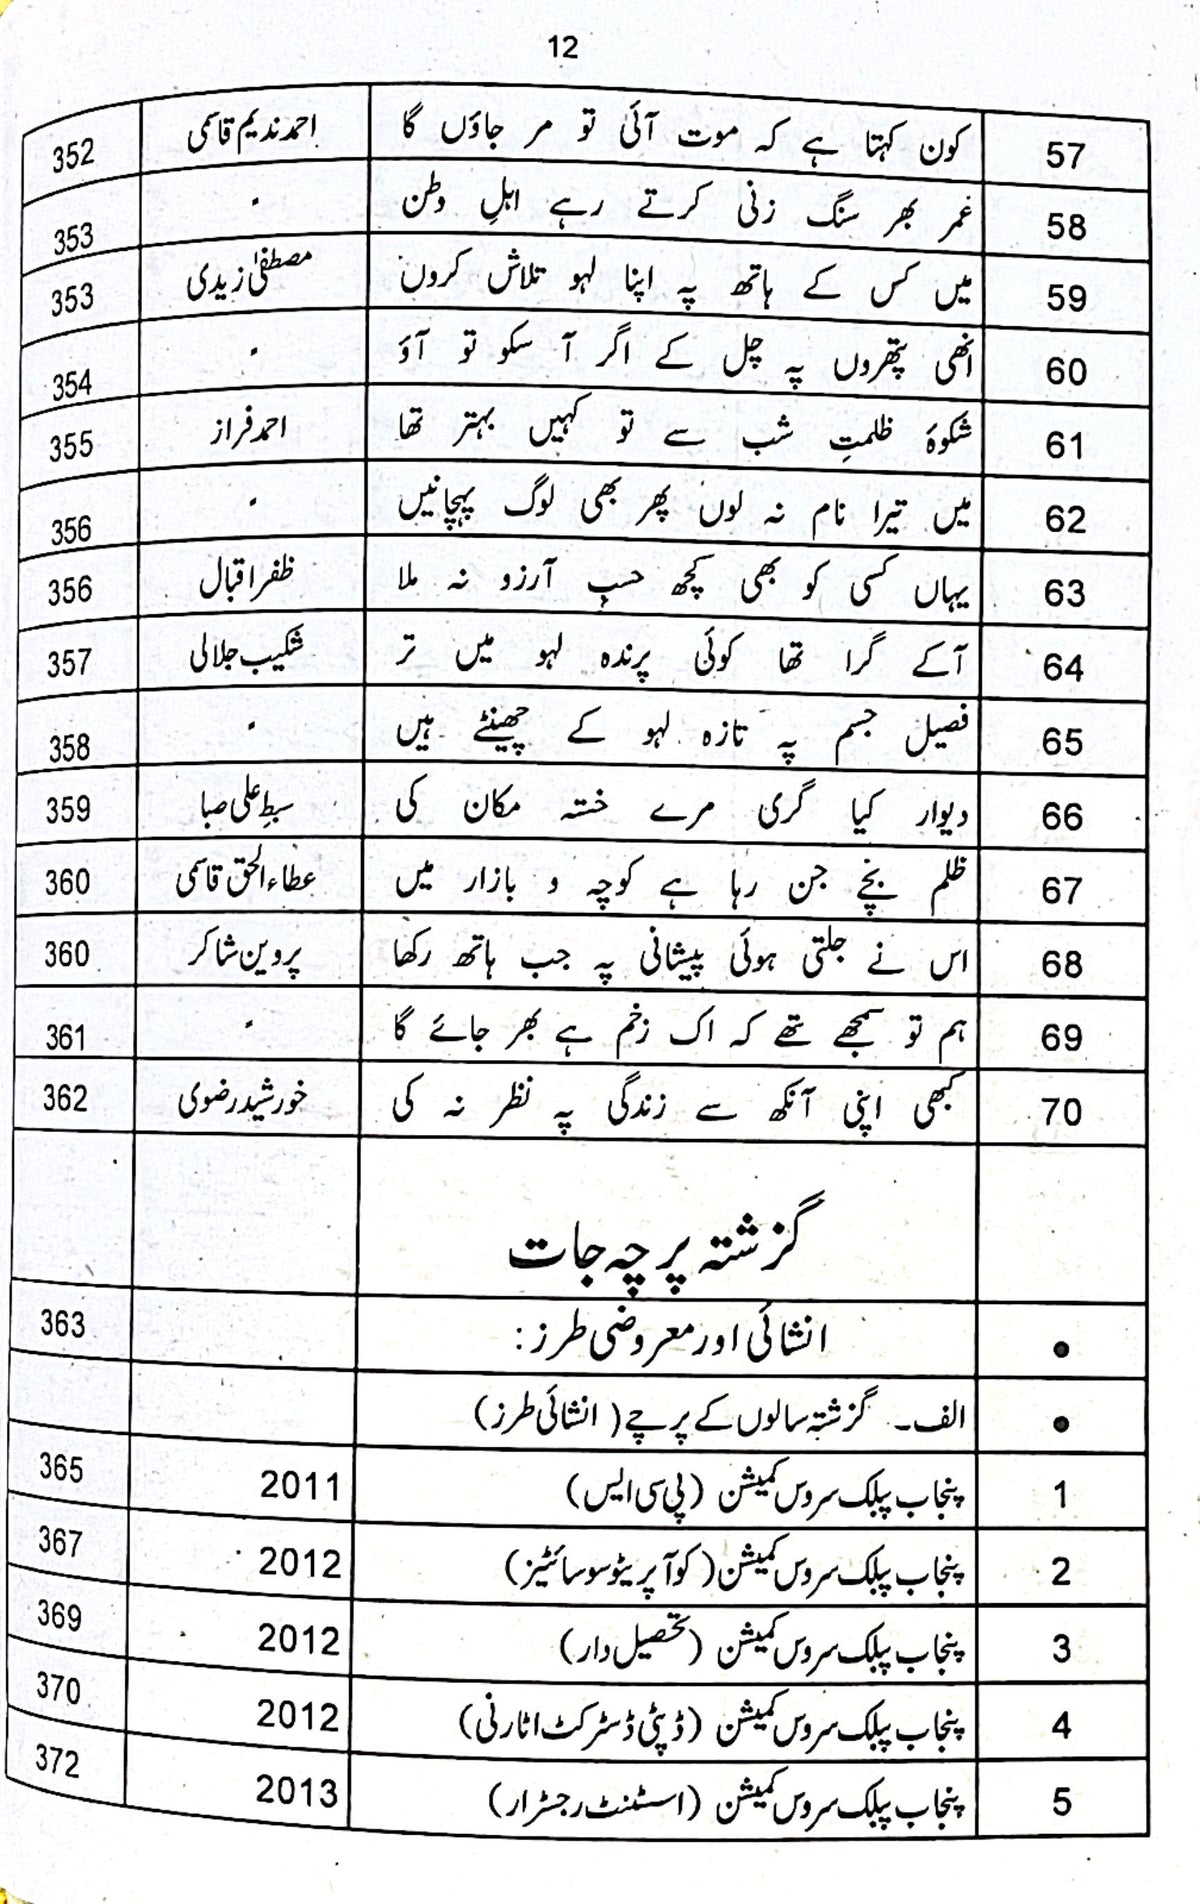 12
57 کون کہتا ہے کہ موت آئی تو مر جاؤں گا احمد ندیم قاسمی 352
58 عمر بھر سنگ زنی کرتے رہے اہلِ وطن " 353
59 میں کس کے ہاتھ پہ اپنا لہو تلاش کروں مصطفیٰ زیدی 353
60 انھی پتھروں پہ چل کے اگر آ سکو تو آؤ " 354
61 شکوۂ ظلمتِ شب سے تو کہیں بہتر تھا احمد فراز 355
62 میں تیرا نام نہ لوں پھر بھی لوگ پہچانیں " 356
63 یہاں کسی کو بھی کچھ حسبِ آرزو نہ ملا ظفر اقبال 356
64 آکے گرا تھا کوئی پرندہ لہو میں تر شکیب جلالی 357
65 فصیل جسم پہ تازہ لہو کے چھینٹے ہیں " 358
66 دیوار کیا گری مرے خستہ مکان کی سبطِ علی صبا 359
67 ظلم بچے جن رہا ہے کوچہ و بازار میں عطاء الحق قاسمی 360
68 اس نے جلتی ہوئی پیشانی پہ جب ہاتھ رکھا پروین شاکر 360
69 ہم تو سمجھے تھے کہ اک زخم ہے بھر جائے گا " 361
70 کبھی اپنی آنکھ سے زندگی پہ نظر نہ کی خورشید رضوی 362
گزشتہ پرچہ جات
● انشائی اور معروضی طرز: 363
● الف۔ گزشتہ سالوں کے پرچے (انشائی طرز)
1 پنجاب پبلک سروس کمیشن (پی سی ایس) 2011 365
2 پنجاب پبلک سروس کمیشن (کوآپریٹو سوسائٹیز) 2012 367
3 پنجاب پبلک سروس کمیشن (تحصیل دار) 2012 369
4 پنجاب پبلک سروس کمیشن (ڈپٹی ڈسٹرکٹ اٹارنی) 2012 370
5 پنجاب پبلک سروس کمیشن (اسسٹنٹ رجسٹرار) 2013 372